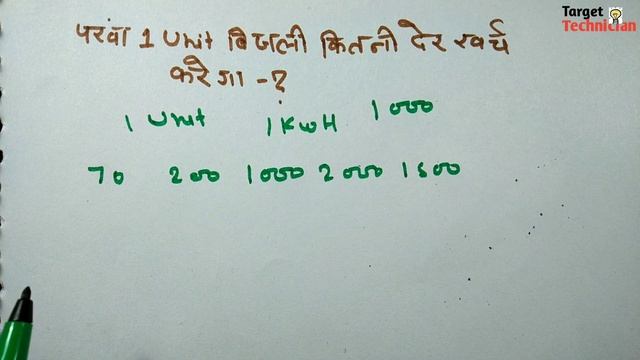 Target
Technician
पंखा 1 Unit बिजली कितनी देर खर्च
करेगा - ?
1 Unit 1 KWH 1000
70 200 1000 2000 1500